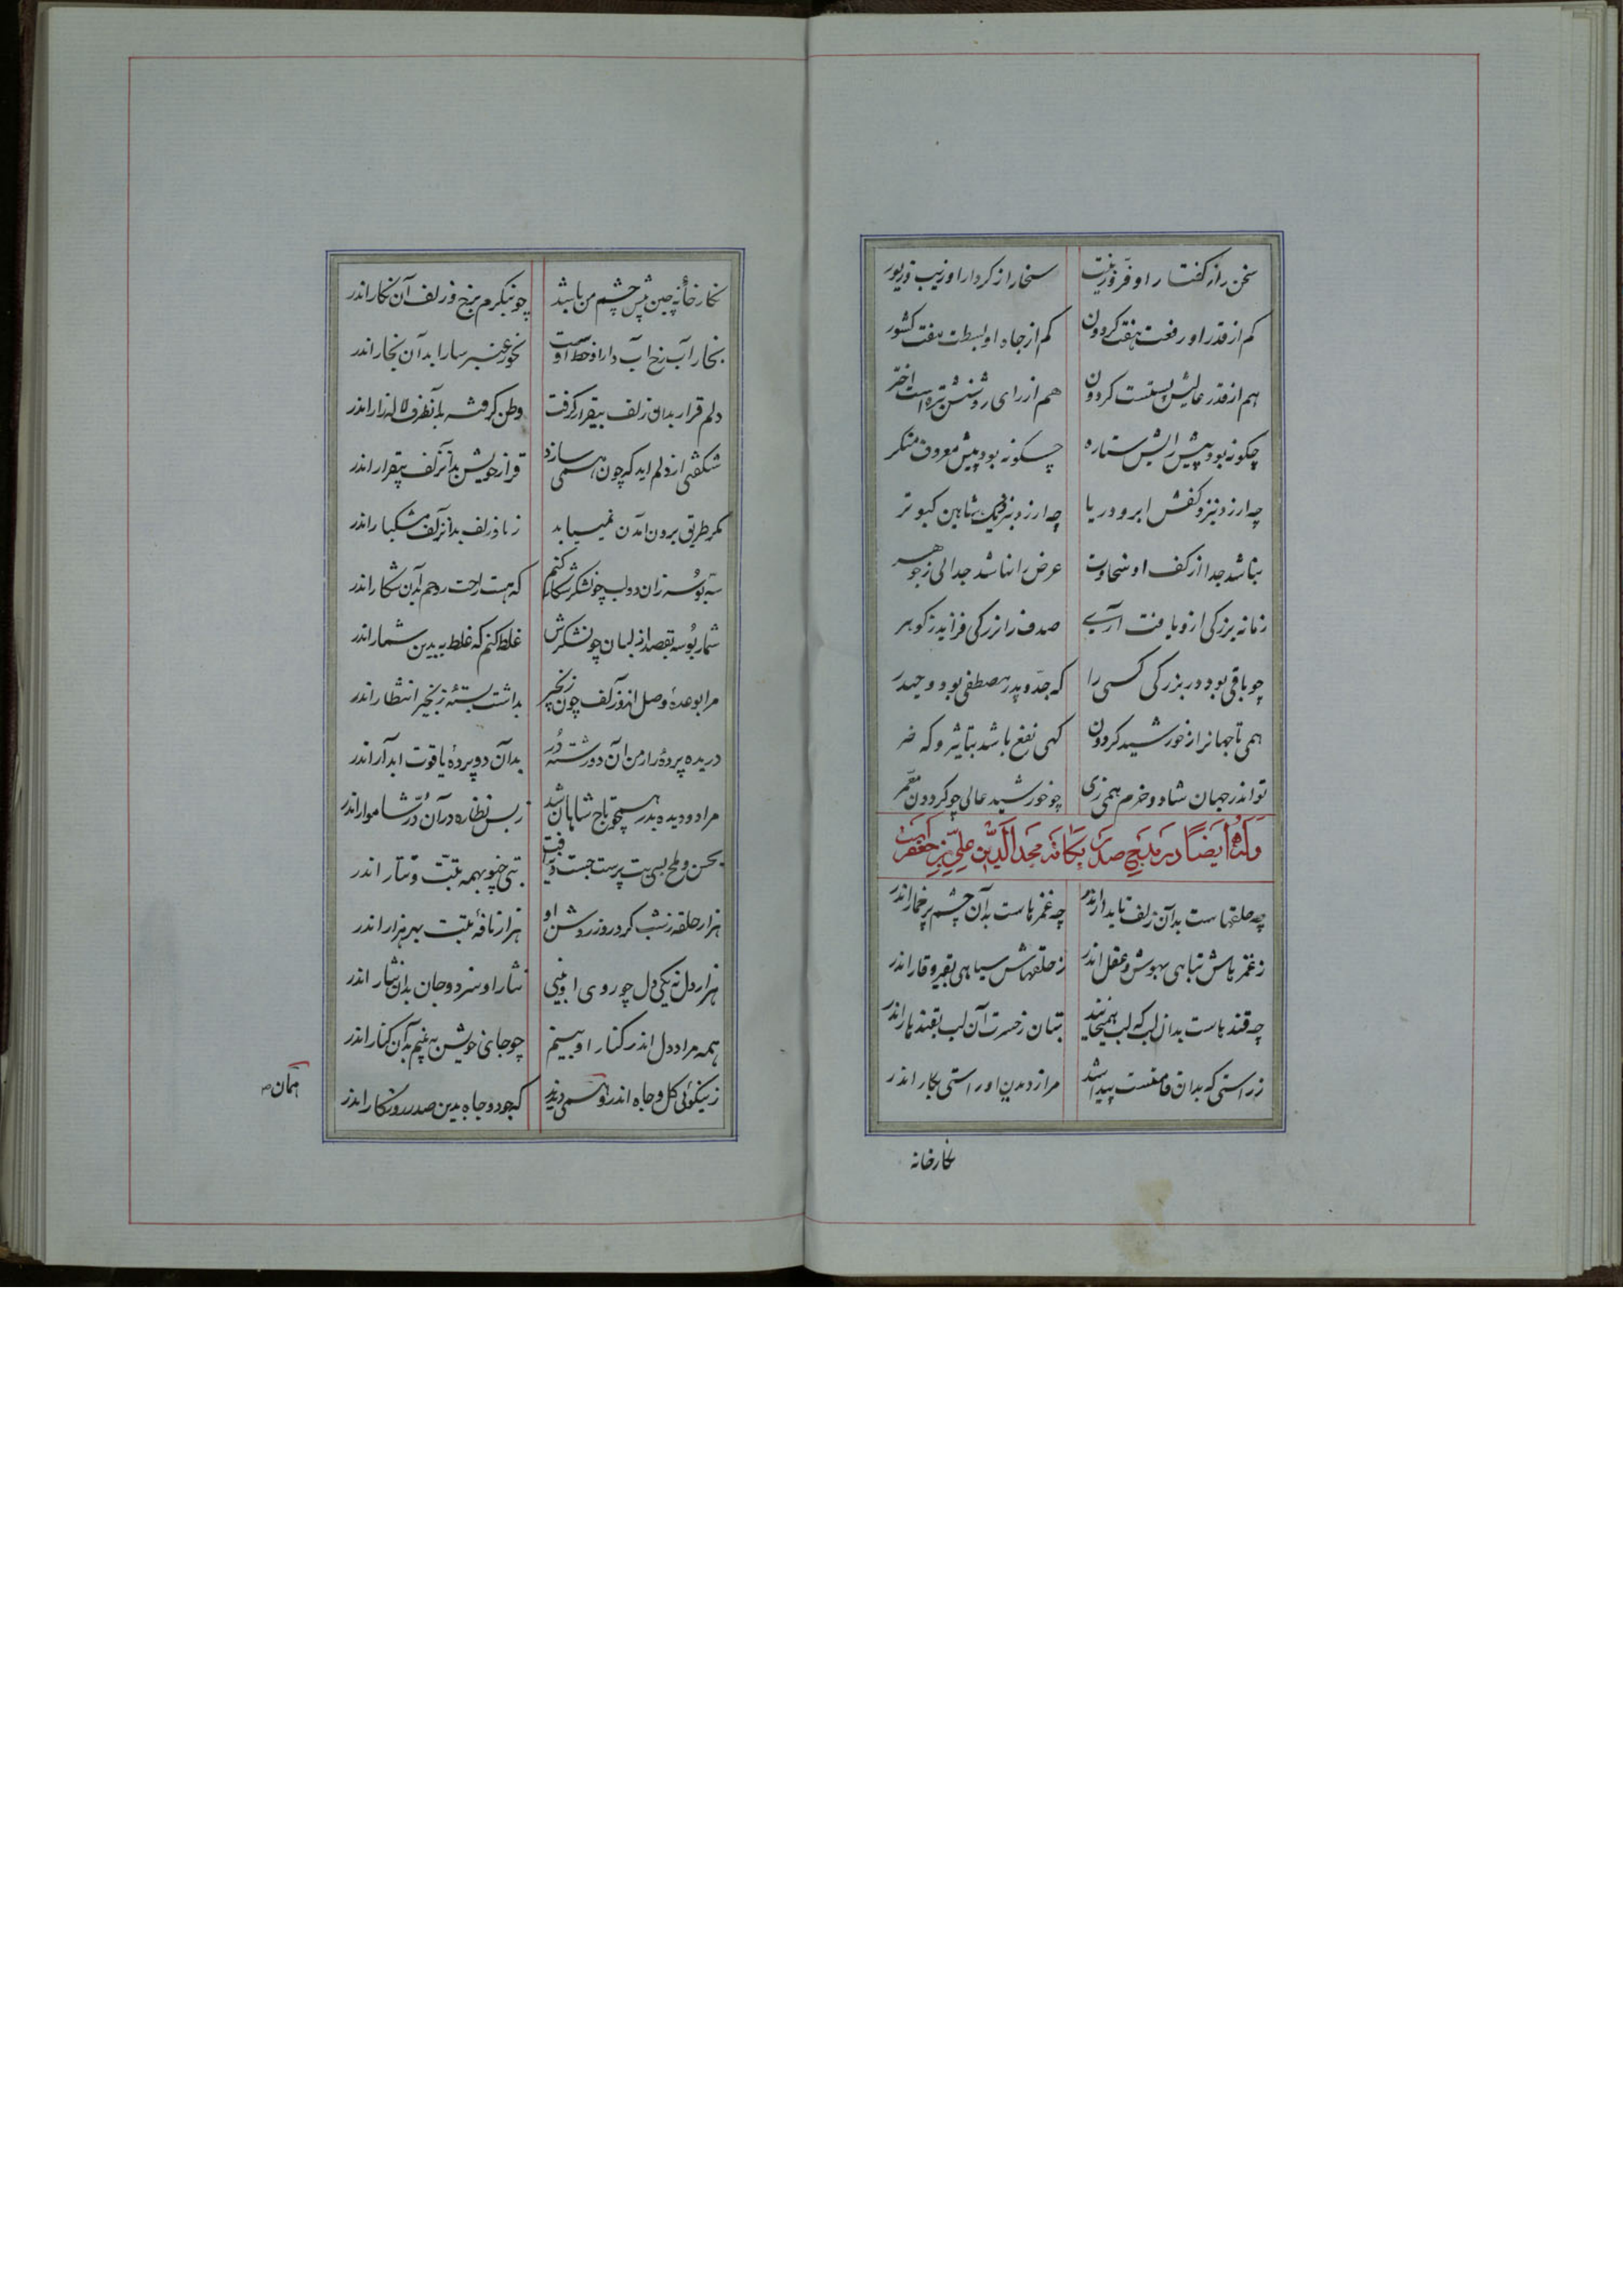 سخن را ز گفتار او فر و زینت سخا را ز کردار او زیب و زیور
کم از قدر او رفعت هفت گردون کم از جاه او بسطت هفت کشور
هم از قدر عالیش پستست گردون هم از رای روشنش تیره است اختر
چگونه بود پیش رایش ستاره چگونه بود پیش معروف منکر
چه ارزد بنزد کفش ابر و دریا چه ارزد بنزدیک شاهین کبوتر
نباشد جدا از کف او سخاوت عرض را نباشد جدائی ز جوهر
زمانه بزرگی ازو یافت آری صدف را بزرگی فزاید ز گوهر
چو باقی بود در بزرگی کسی را که جد و پدر مصطفی بود و حیدر
همی تا جهانرا ز خورشید گردون گهی نفع باشد بتاثیر و گه ضر
تو اندر جهان شاد و خرم همی زی چو خورشید عالی چو گردون معمر
وله ایضا در مدیح صدر یگانه مجد الدین علی بن جعفر
چه حلقهاست بدان زلف تابدار اندر چه غمزهاست بدان چشم پرخمار اندر
ز غمزهاش تباهی بهوش و عقل اندر ز حلقهاش سیاهی بقیر و قار اندر
چه قندهاست بدان لب که لب همیخایند بتان ز حسرت آن لب بقندهار اندر
ز راستی که بدان قامتست پیدا شد مرا ز دیدن او راستی بکار اندر
نگارخانه
نگارخانه چین پیش چشم من باشد چو بنگرم برخ و زلف آن نگار اندر
بخار آب رخ آب دار او خط اوست بخور عنبر سارا بدان بخار اندر
دلم قرار بدان زلف بیقرار گرفت وطن گرفته بدانطرف لاله زار اندر
شگفتی از دلم اید که چون همی سازد قرار خویش بدانزلف بیقرار اندر
مگر طریق برون امدن نمییابد ز تاب زلف بدانزلف مشکبار اندر
سه بوسه زان دو لب چون شکر شکار کنم که هست راحت روحم بدان شکار اندر
شمار بوسه بقصد از لبان چون شکرش غلط کنم که غلط به بدین شمار اندر
مرا بوعده وصل اندو زلف چون زنجیر بداشت بسته زنجیر انتظار اندر
دریده پرده راز من آن دو رشته در بدان دو پرده یاقوت ابدار اندر
مرا دو دیده بدر همچو تاج شاهان شد ز بس نظاره در آن در شاهوار اندر
هزار حلقه ز شب کرد روز روشن او هزار نافه تبت بهر هزار اندر
هزار دل نه یکی دل چو روی او بینی نثار او سزد و جان بدان نثار اندر
همه مراد دل اندر کنار او بینم چو جای خویش به بینم بدان کنار اندر
ز نیکوئی گل و جاه اندرو همی دیدند که جود و جاه بدین صدر روزگار اندر
همان